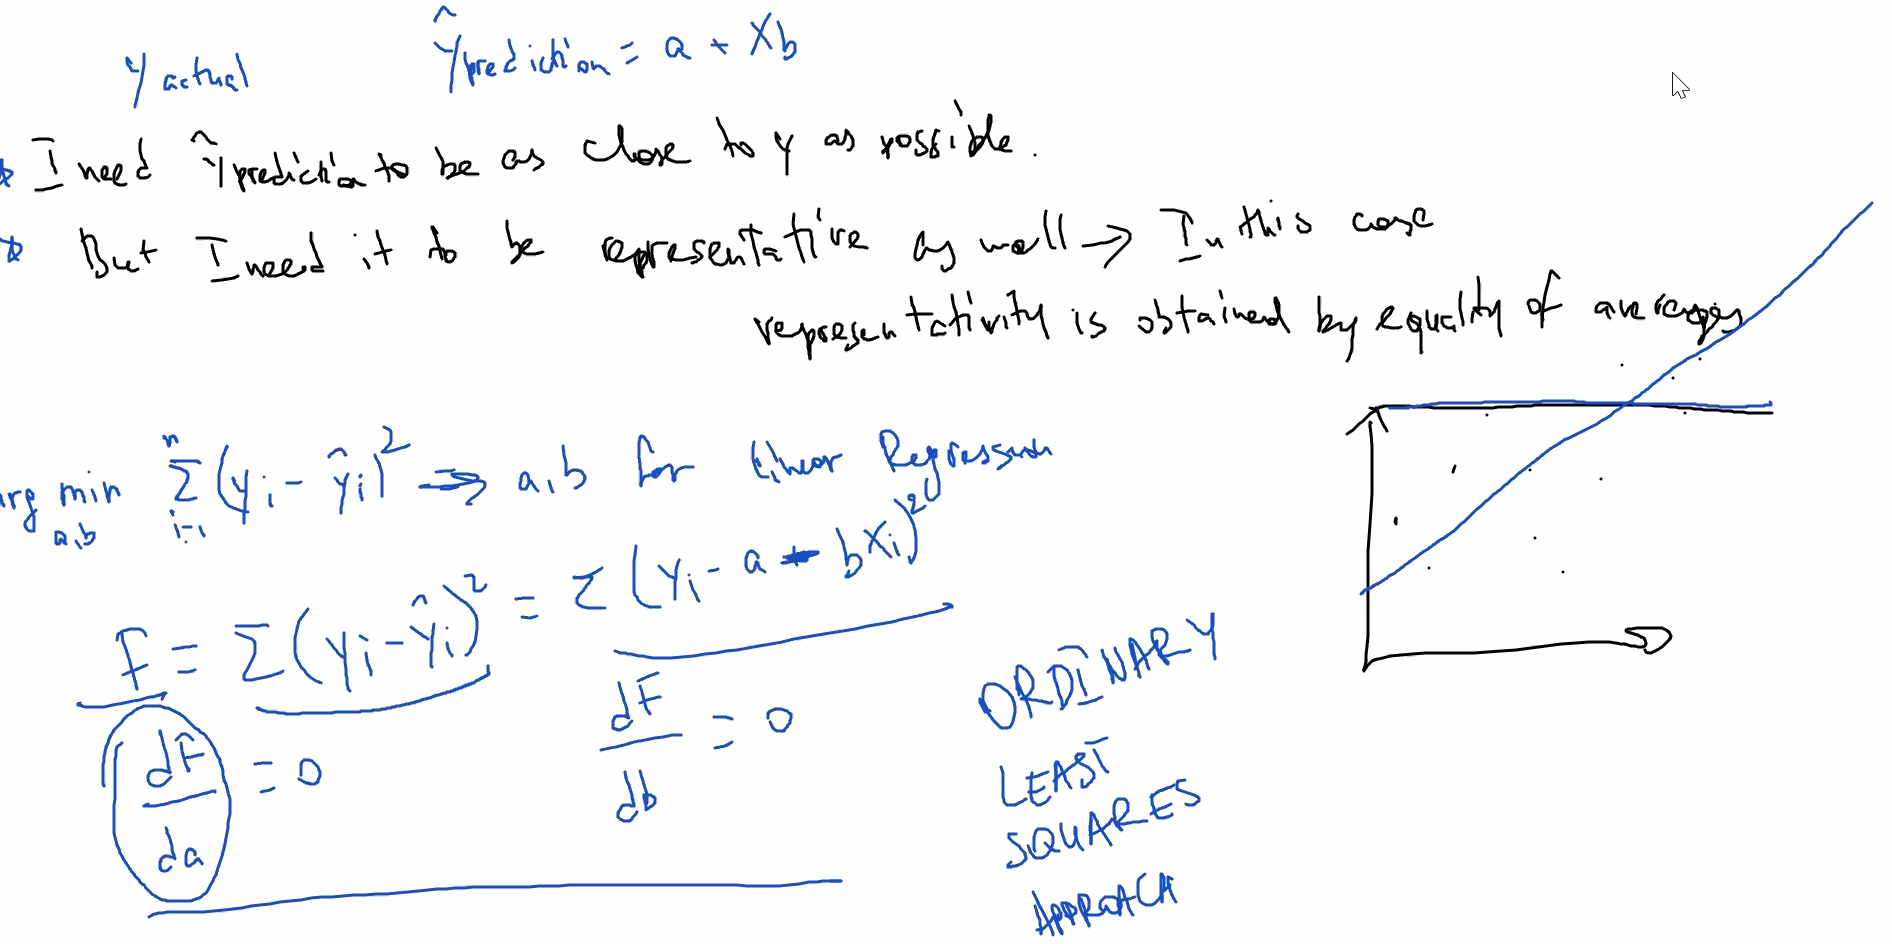 y actual ŷ prediction = a + Xb
I need ŷ prediction to be as close to y as possible.
But I need it to be representative as well → In this case
representativity is obtained by equality of averages
arg min a,b Σ i=1 n (yi - ŷi)² ⇒ a,b for Linear Regression
F = Σ(yi - ŷi)² = Σ(yi - a - bXi)²
dF/da = 0 dF/db = 0
ORDINARY
LEAST
SQUARES
APPROACH